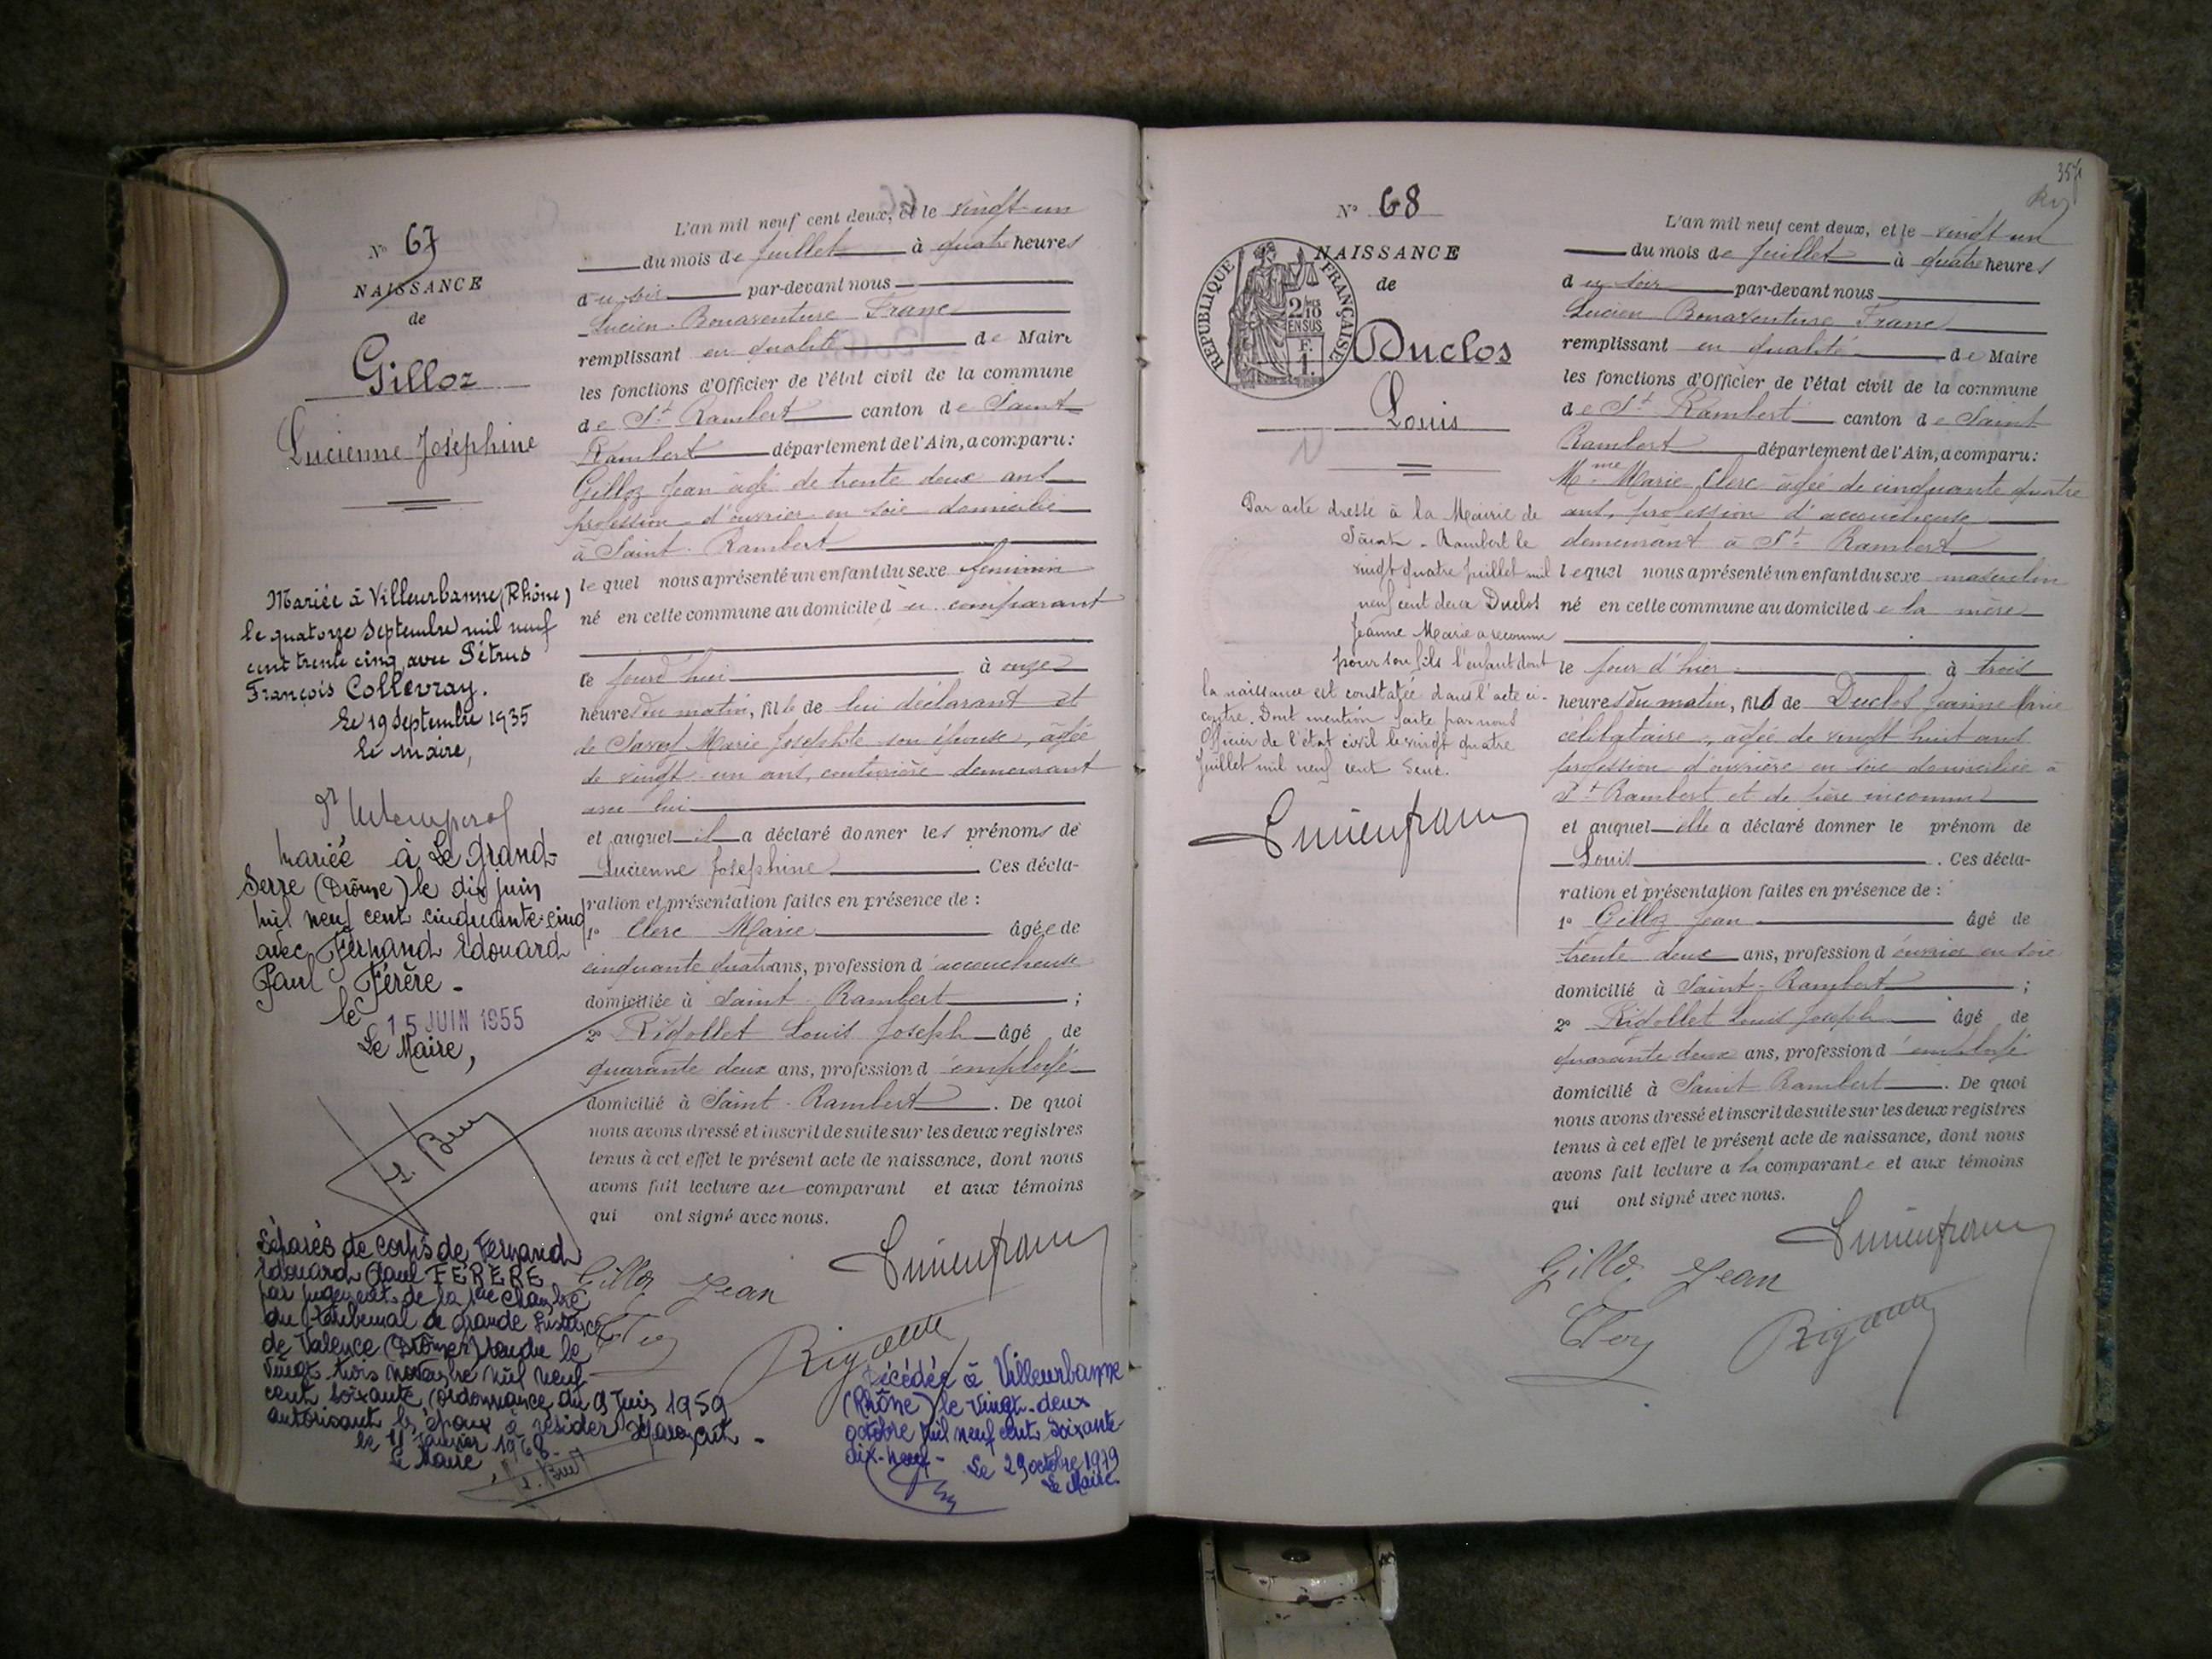 N° 67
NAISSANCE
de
Gilloz
Lucienne Joséphine
Mariée à Villeurbanne (Rhône)
le quatorze Septembre mil neuf
cent trente cinq avec Pétrus
François Collevray.
Le 19 Septembre 1935
Le Maire,
Mariée à Le Grand-
Serre (Drôme) le dix juin
mil neuf cent cinquante-cinq
avec Fernand Edouard
Paul Férère -
le 15 JUIN 1955
Le Maire,
Séparés de corps de Fernand
Edouard Paul FÉRÈRE
par jugement de la 1ère chambre
du tribunal de grande Instance
de Valence (Drôme) rendu le
vingt-trois novembre mil neuf
cent soixante (ordonnance du 9 Juin 1959
autorisant les époux à résider séparément -
le 11 Janvier 1968 -
Le Maire,
L'an mil neuf cent deux, et le vingt-un
du mois de Juillet à quatre heures
du soir par-devant nous
Lucien Bonaventure Franc
remplissant en qualité de Maire
les fonctions d'Officier de l'état civil de la commune
de St Rambert canton de Saint
Rambert département de l'Ain, a comparu:
Gilloz Jean âgé de trente deux ans
profession d'ouvrier en soie domicilié
à Saint-Rambert
lequel nous a présenté un enfant du sexe féminin
né en cette commune au domicile du comparant
ce jourd'hui à onze
heures du matin, fille de lui déclarant et
de Marie son épouse, âgée
de vingt-un ans, couturière demeurant
avec lui
et auquel il a déclaré donner les prénoms de
Lucienne Joséphine Ces décla-
ration et présentation faites en présence de :
1° Clerc Marie âgée de
cinquante quatre ans, profession d'accoucheuse
domiciliée à Saint-Rambert ;
2° Rigollet Louis Joseph âgé de
quarante deux ans, profession d'employé
domicilié à Saint-Rambert . De quoi
nous avons dressé et inscrit de suite sur les deux registres
tenus à cet effet le présent acte de naissance, dont nous
avons fait lecture au comparant et aux témoins
qui ont signé avec nous.
Gilloz Jean
Décédée à Villeurbanne
(Rhône) le vingt-deux
octobre mil neuf cent soixante
dix-neuf - Le 29 octobre 1979
Le Maire.
357
N° 68
NAISSANCE
de
RÉPUBLIQUE FRANÇAISE
2/10 EN SUS
F. 1.
Duclos
Louis
Par acte dressé à la Mairie de
Saint-Rambert le
vingt quatre Juillet mil
neuf cent deux Duclos
Jeanne Marie a reconnu
pour son fils l'enfant dont
la naissance est constatée dans l'acte ci-
contre. Dont mention faite par nous
Officier de l'état civil le vingt quatre
Juillet mil neuf cent deux.
L'an mil neuf cent deux, et le vingt un
du mois de Juillet à quatre heures
du soir par-devant nous
Lucien Bonaventure Franc
remplissant en qualité de Maire
les fonctions d'Officier de l'état civil de la commune
de St Rambert canton de Saint
Rambert département de l'Ain, a comparu:
Mme Marie Clerc âgée de cinquante quatre
ans, profession d'accoucheuse
demeurant à St Rambert
lequel nous a présenté un enfant du sexe masculin
né en cette commune au domicile de la mère
le jour d'hier à trois
heures du matin, fils de Duclos Jeanne Marie
célibataire, âgée de vingt huit ans
profession d'ouvrière en soie domiciliée à
St Rambert et de père inconnu
et auquel elle a déclaré donner le prénom de
Louis . Ces décla-
ration et présentation faites en présence de :
1° Gilloz Jean âgé de
trente deux ans, profession d'ouvrier en soie
domicilié à Saint-Rambert ;
2° Rigollet Louis Joseph âgé de
quarante deux ans, profession d'employé
domicilié à Saint Rambert . De quoi
nous avons dressé et inscrit de suite sur les deux registres
tenus à cet effet le présent acte de naissance, dont nous
avons fait lecture à la comparante et aux témoins
qui ont signé avec nous.
Gilloz Jean